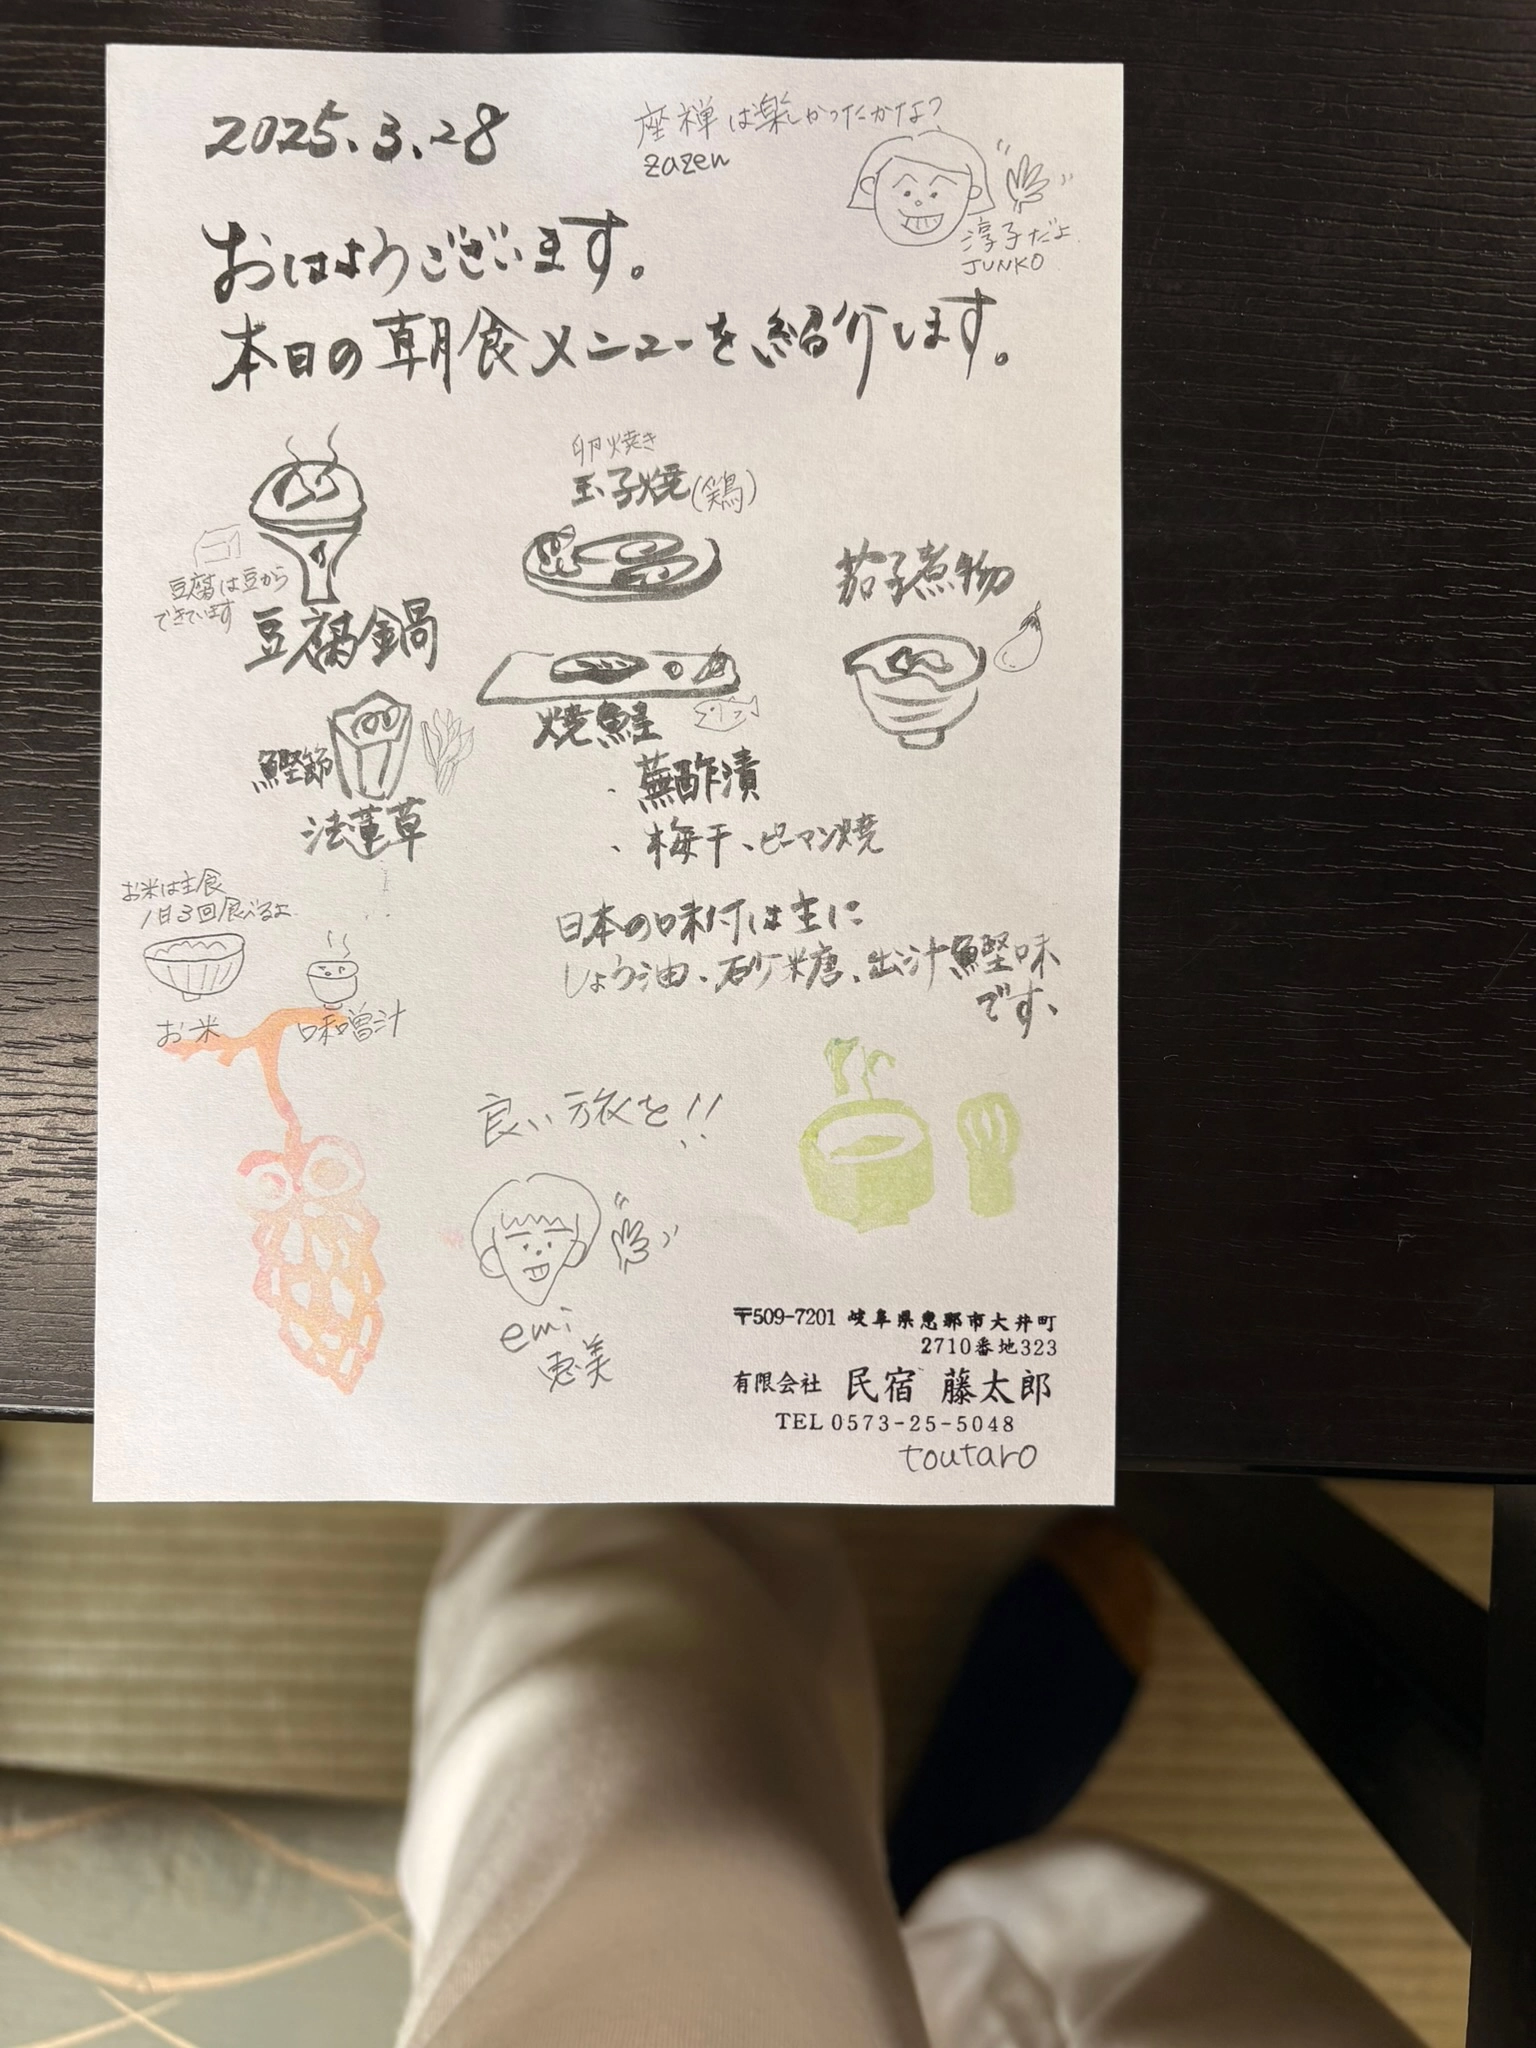 2025.3.28
座禅は楽しかったかな?
zazen
淳子だよ
JUNKO
おはようございます。
本日の朝食メニューを紹介します。
卵焼き
玉子焼(鶏)
茄子煮物
豆腐は豆から
できています
豆腐鍋
焼鮭
鰹節
法蓮草
、蕪酢漬
、梅干、ピーマン焼
お米は主食
1日3回食べるよ
お米
味噌汁
日本の味付は主に
しょう油、砂糖、出汁鰹味
です、
良い旅を!!
emi
恵美
〒509-7201 岐阜県恵那市大井町
2710番地323
有限会社 民宿 藤太郎
TEL 0573-25-5048
toutaro